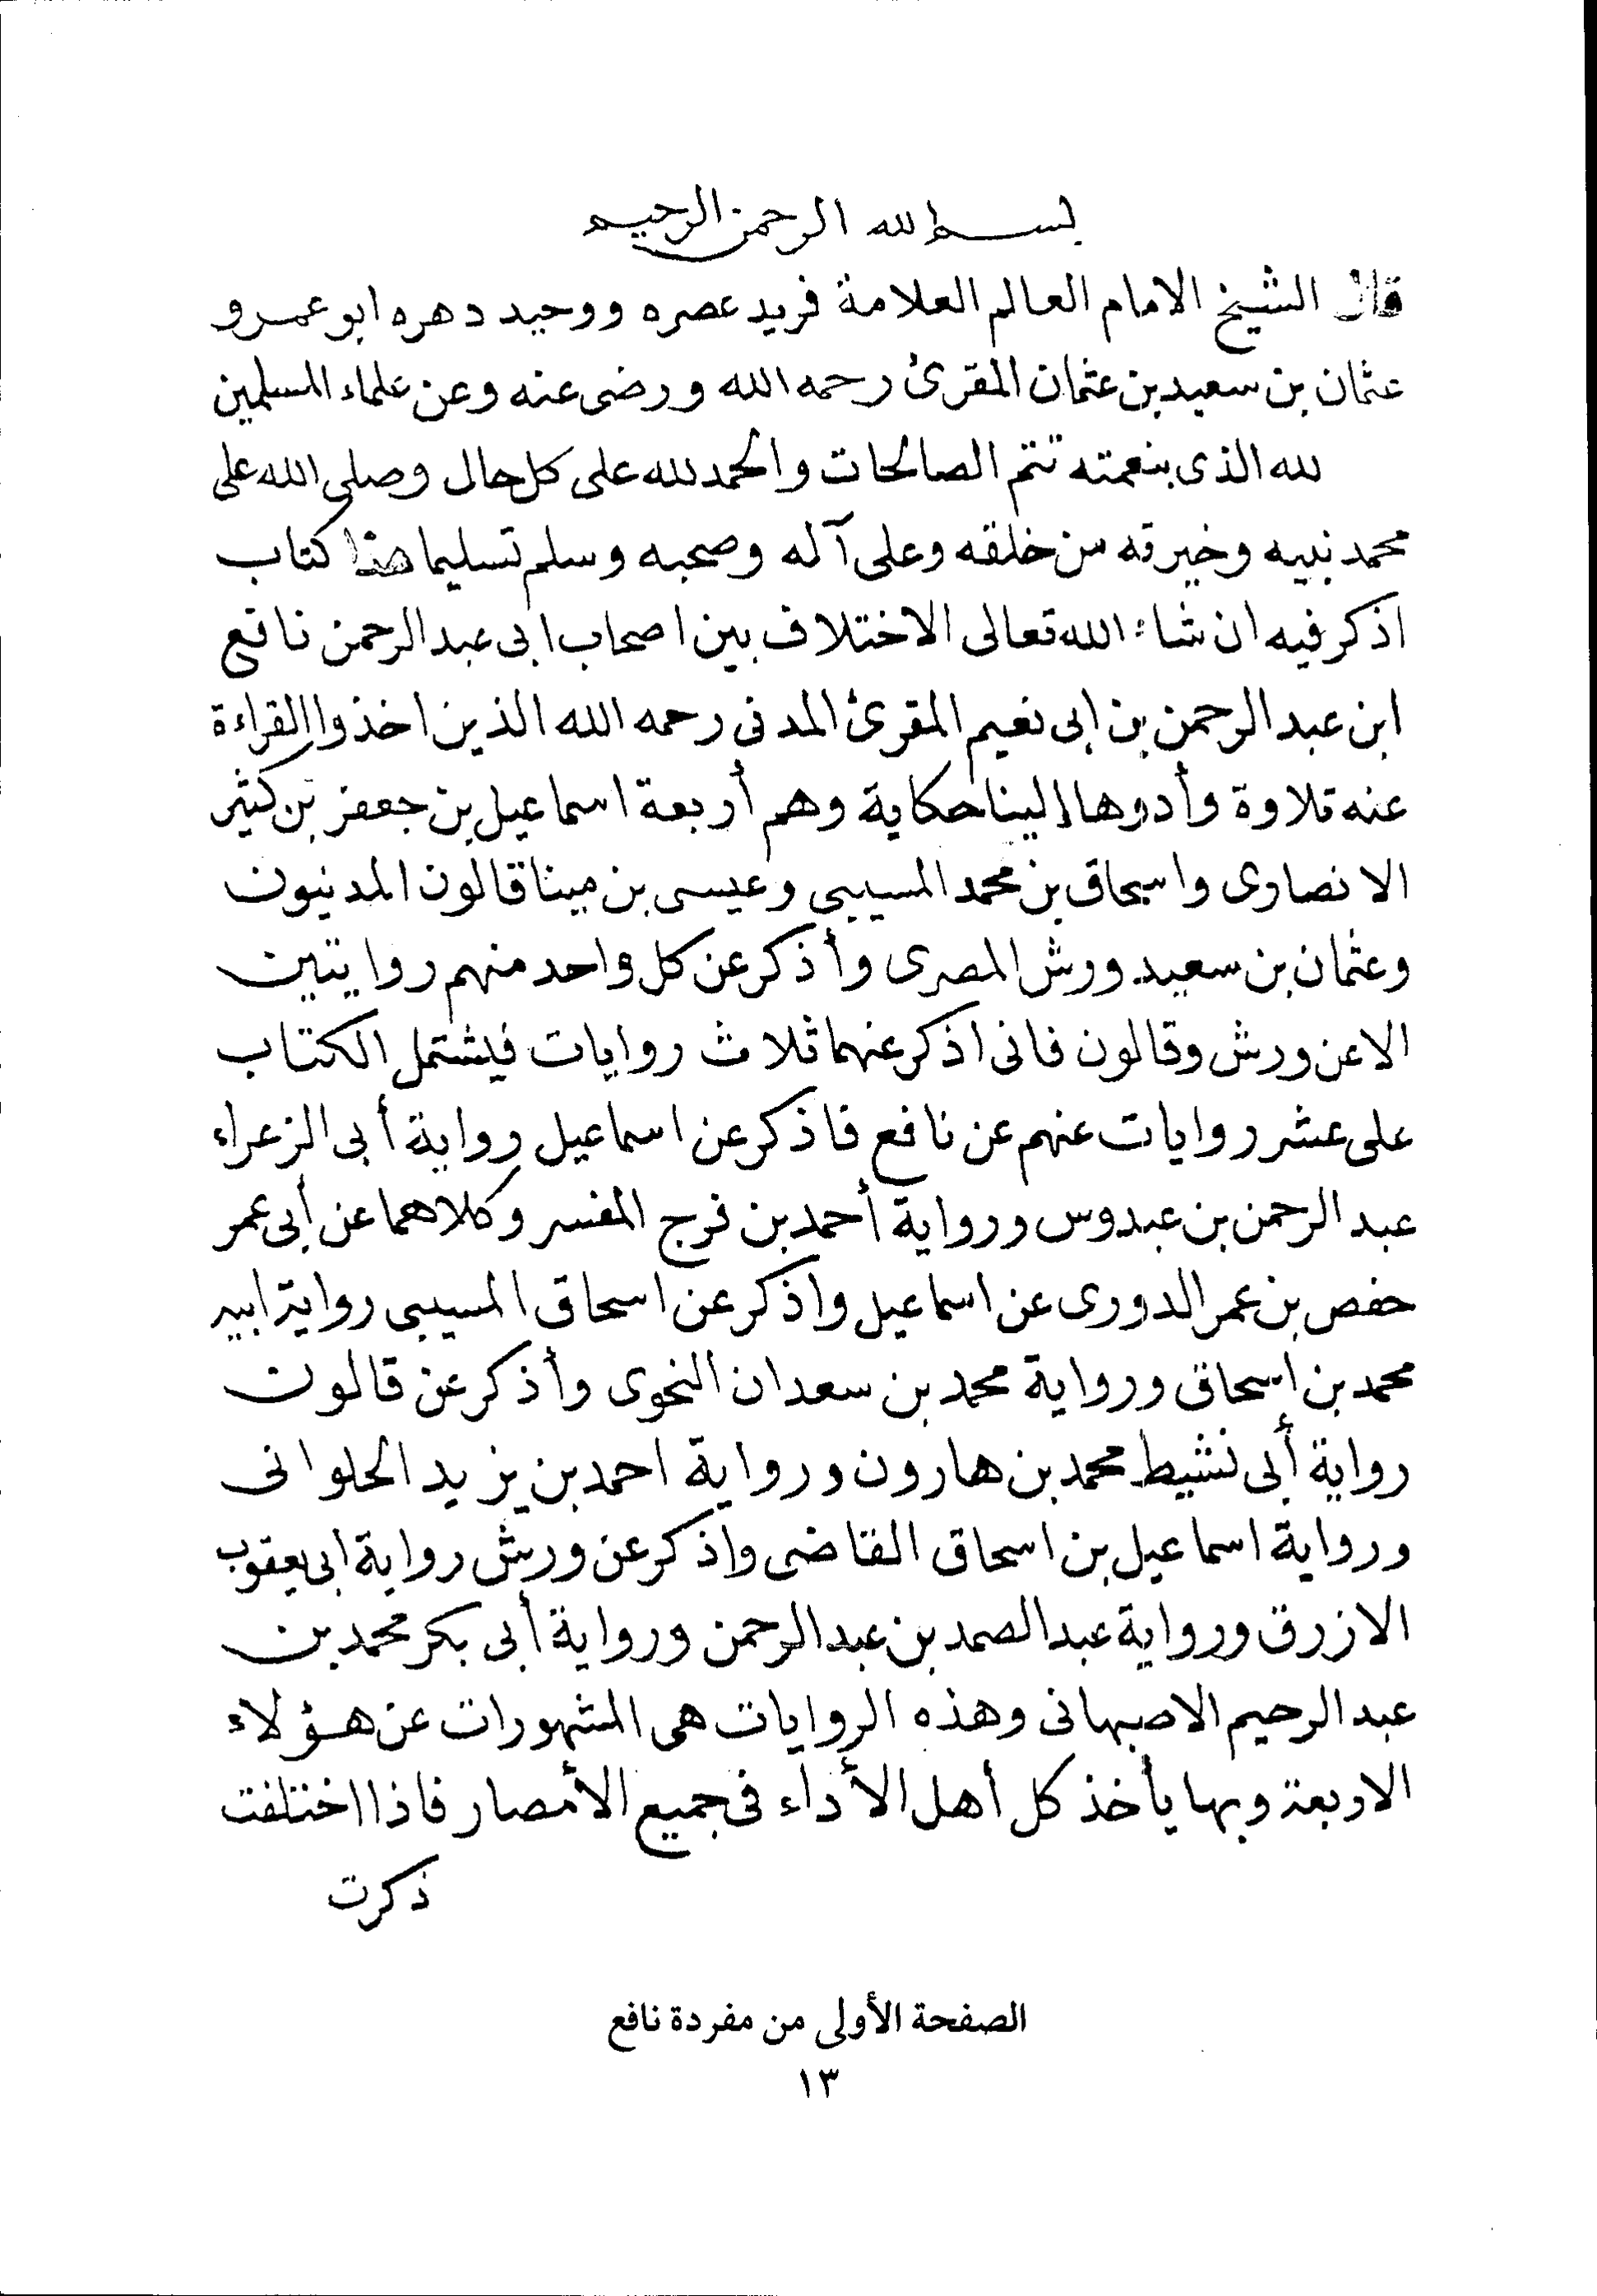 بسم الله الرحمن الرحيم
قال الشيخ الامام العالم العلامة فريد عصره ووحيد دهره ابو عمرو
عثمان بن سعيد بن عثمان المقرئ رحمه الله ورضى عنه وعن علماء المسلمين
لله الذى بنعمته تتم الصالحات والحمد لله على كل حال وصلى الله على
محمد نبيه وخيرته من خلقه وعلى آله وصحبه وسلم تسليما هذا كتاب
اذكر فيه ان شاء الله تعالى الاختلاف بين اصحاب ابى عبد الرحمن نافع
ابن عبد الرحمن بن ابى نعيم المقرئ المدنى رحمه الله الذين اخذوا القراءة
عنه تلاوة وأدوها الينا حكاية وهم أربعة اسماعيل بن جعفر بن كثير
الانصارى واسحاق بن محمد المسيبى وعيسى بن مينا قالون المدنيون
وعثمان بن سعيد ورش المصرى وأذكر عن كل واحد منهم روايتين
الا عن ورش وقالون فانى اذكر عنهما ثلاث روايات فيشتمل الكتاب
على عشر روايات عنهم عن نافع فاذكر عن اسماعيل رواية أبى الزعراء
عبد الرحمن بن عبدوس ورواية أحمد بن فرج المفسر وكلاهما عن أبى عمر
حفص بن عمر الدورى عن اسماعيل واذكر عن اسحاق المسيبى رواية ابيه
محمد بن اسحاق ورواية محمد بن سعدان النحوى وأذكر عن قالون
رواية أبى نشيط محمد بن هارون ورواية احمد بن يزيد الحلوانى
ورواية اسماعيل بن اسحاق القاضى واذكر عن ورش رواية ابى يعقوب
الازرق ورواية عبد الصمد بن عبد الرحمن ورواية أبى بكر محمد بن
عبد الرحيم الاصبهانى وهذه الروايات هى المشهورات عن هؤلاء
الاربعة وبها يأخذ كل أهل الأداء فى جميع الأمصار فاذا اختلفت
ذكرت
الصفحة الأولى من مفردة نافع
١٣